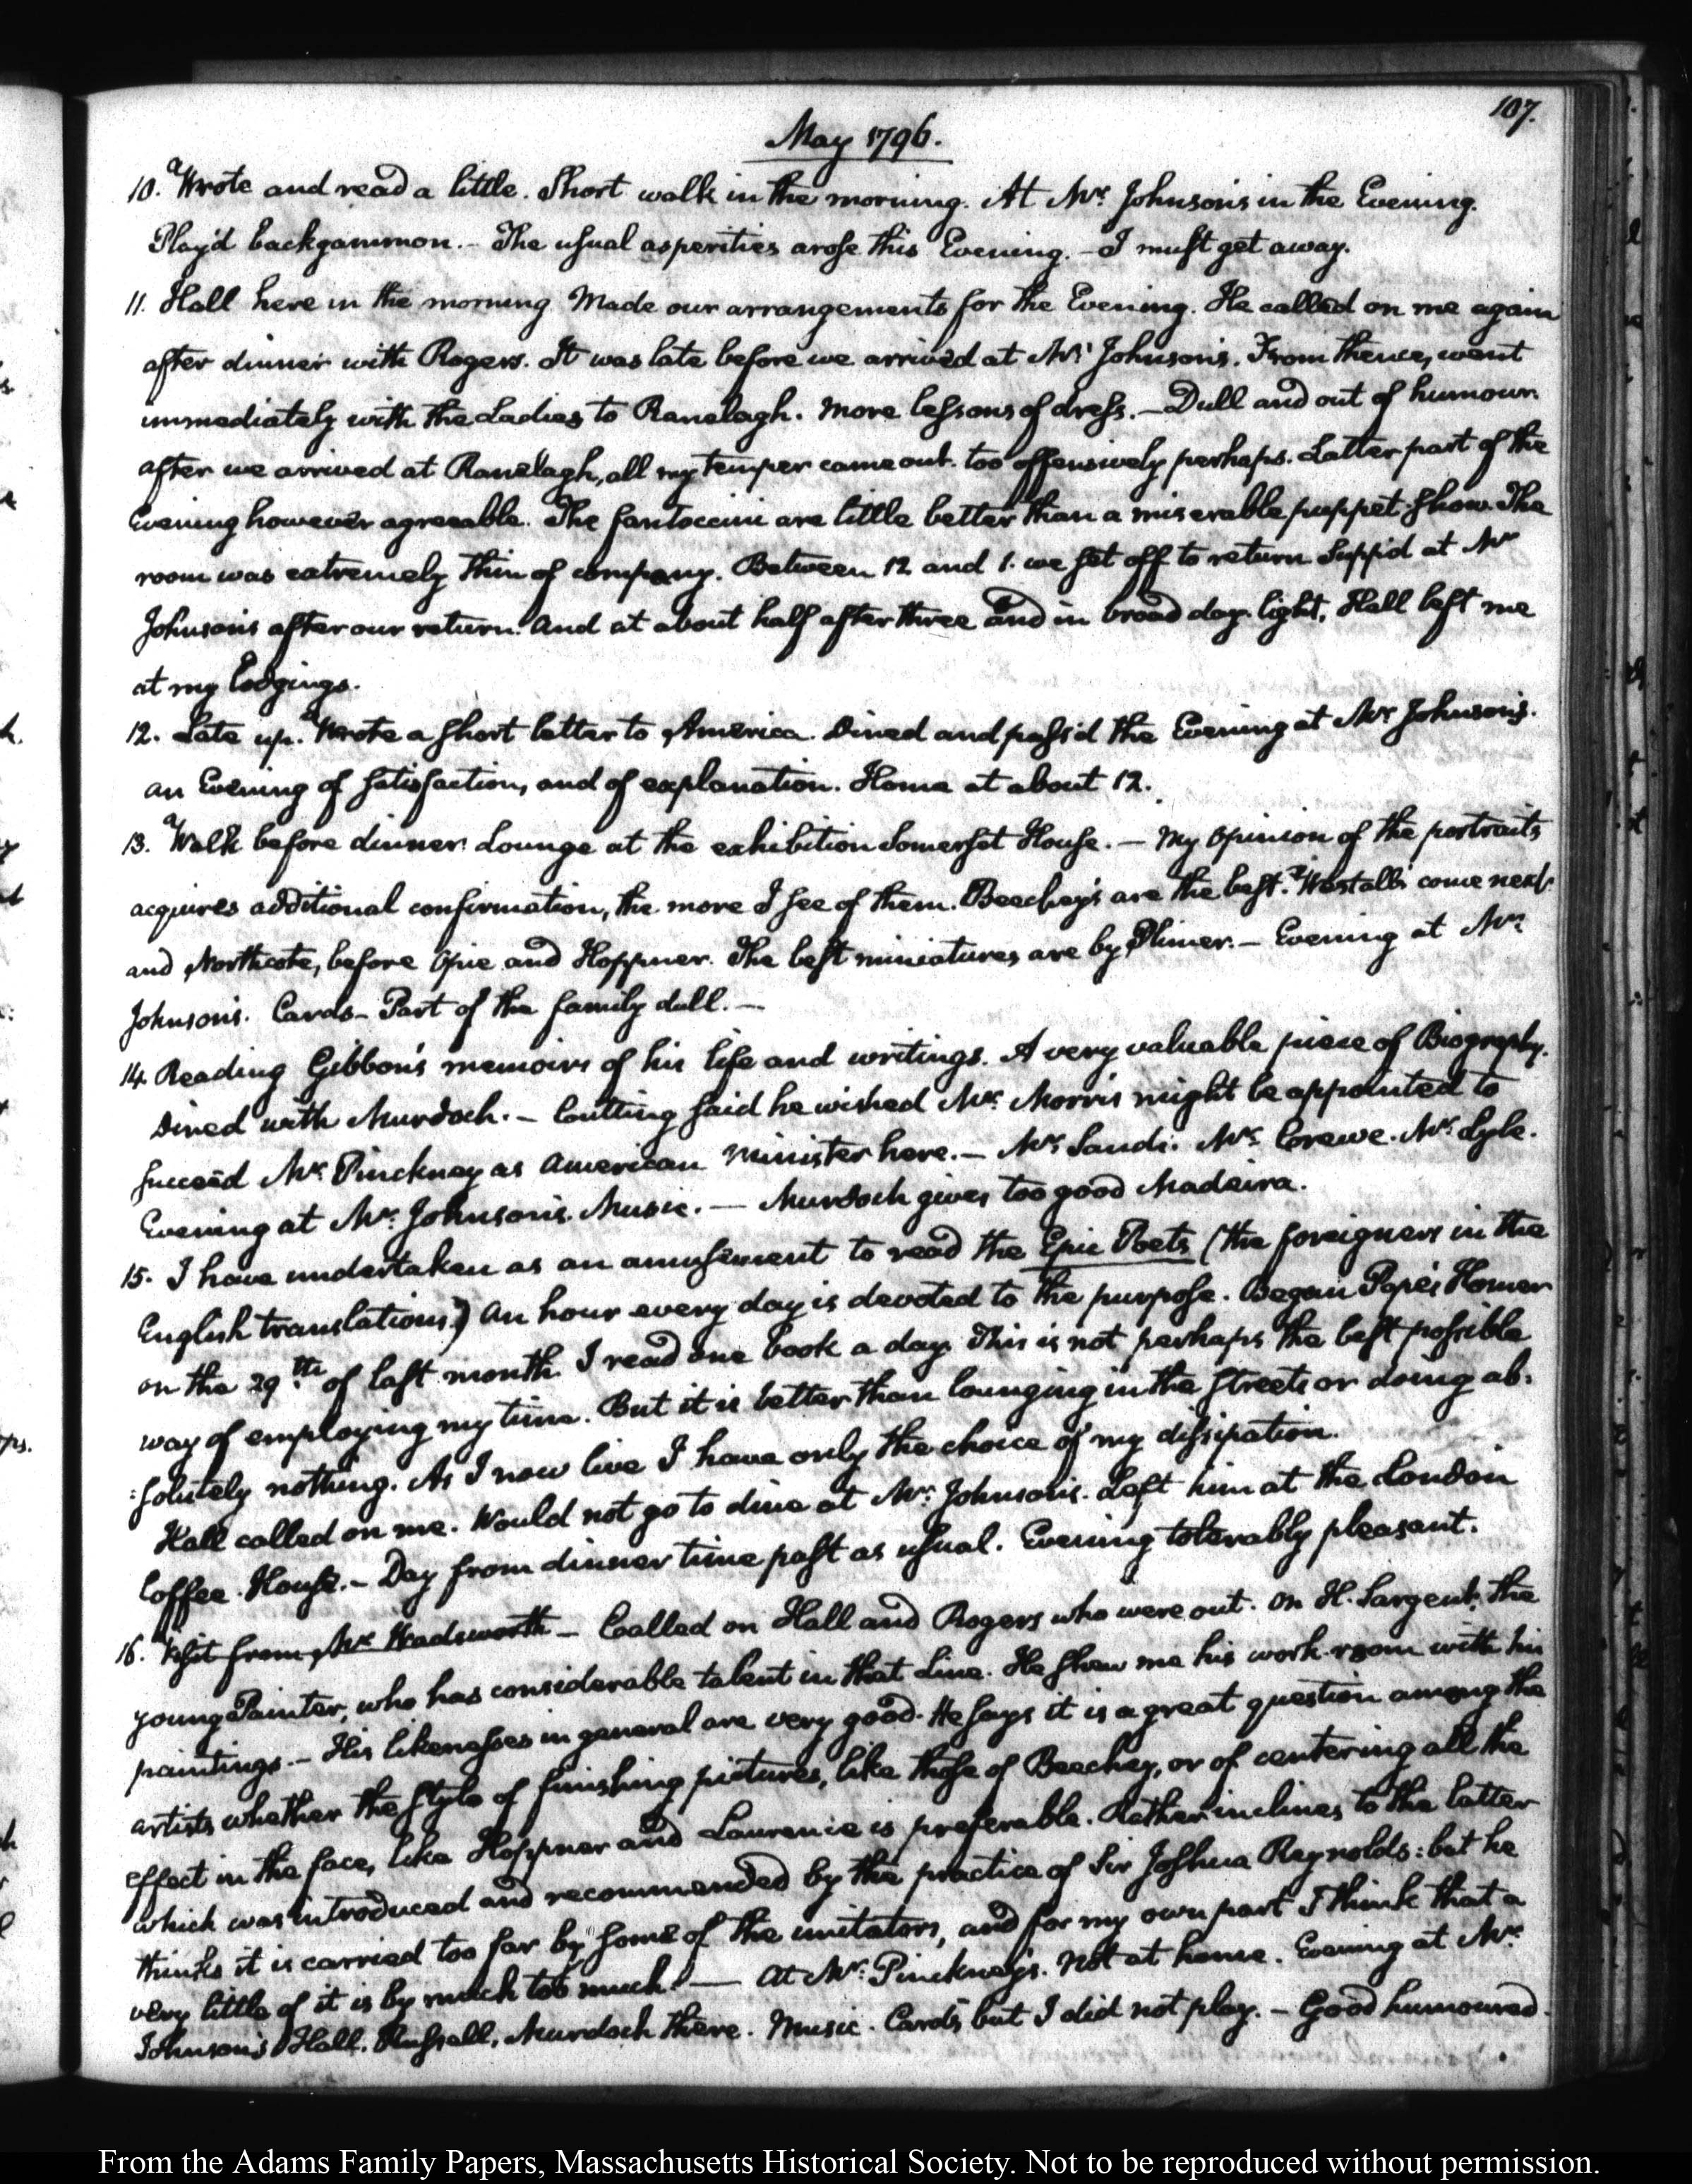 107.
May 1796.
10. Wrote and read a little. Short walk in the morning. At Mr. Johnson's in the Evening.
Play'd backgammon. – The usual asperities arose this Evening. – I must get away.
11. Hall here in the morning Made our arrangements for the Evening. He called on me again
after dinner with Rogers. It was late before we arrived at Mr. Johnson's. From thence, went
immediately with the Ladies to Ranelagh. More lessons of dress. – Dull and out of humour.
after we arrived at Ranelagh, all my temper came out. too offensively perhaps. Latter part of the
Evening however agreeable. The fantoccini are little better than a miserable puppet-show. The
room was extremely thin of company. Between 12 and 1. we set off to return Supp'd at Mr
Johnson's after our return. And at about half after three and in broad day-light, Hall left me
at my lodgings.
12. Late up. Wrote a short letter to America. Dined and pass'd the Evening at Mr Johnson's.
an Evening of satisfaction, and of explanation. Home at about 12.
13. Walk before dinner. Lounge at the exhibition Somerset House. – My opinion of the portraits
acquires additional confirmation, the more I see of them. Beechey's are the best. Westall's come next
and Northcote, before Opie and Hoppner. The best miniatures are by Plimer. – Evening at Mr.
Johnson's. Cards – Part of the family dull. –
14. Reading Gibbon's memoirs of his life and writings. A very valuable piece of Biography.
Dined with Murdoch. – Cutting said he wished Mr. Morris might be appointed to
succeed Mr. Pinckney as American Minister here. – Mr. Sands. Mr. Corewe. Mr. Lyle.
Evening at Mr. Johnson's. Music. – Murdoch gives too good Madeira.
15. I have undertaken as an amusement to read the Epic Poets (the foreigners in the
English translations.) An hour every day is devoted to the purpose. Began Pope's Homer
on the 29.th of last month. I read one book a day. This is not perhaps the best possible
way of employing my time. But it is better than lounging in the streets or doing ab:
:solutely nothing. As I now live I have only the choice of my dissipation.
Hall called on me. Would not go to dine at Mr. Johnson's. Left him at the London
Coffee-House. – Day from dinner time past as usual. Evening tolerably pleasant.
16. Visit from Mr. Wadsworth – Called on Hall and Rogers who were out. On H. Sargent, the
young Painter, who has considerable talent in that line. He shew me his work-room with his
paintings. – His likenesses in general are very good. He says it is a great question among the
artists whether the style of finishing pictures, like those of Beechey, or of centering all the
effect in the face, like Hoppner and Laurence is preferable. Rather inclines to the latter
which was introduced and recommended by the practice of Sir Joshua Reynolds: but he
thinks it is carried too far by some of the imitators, and for my own part I think that a
very little of it is by much too much. – At Mr. Pinckney's. Not at home. Evening at Mr.
Johnson's Hall. Russell, Murdoch there. Music. Cards but I did not play. – Good humoured.
From the Adams Family Papers, Massachusetts Historical Society. Not to be reproduced without permission.